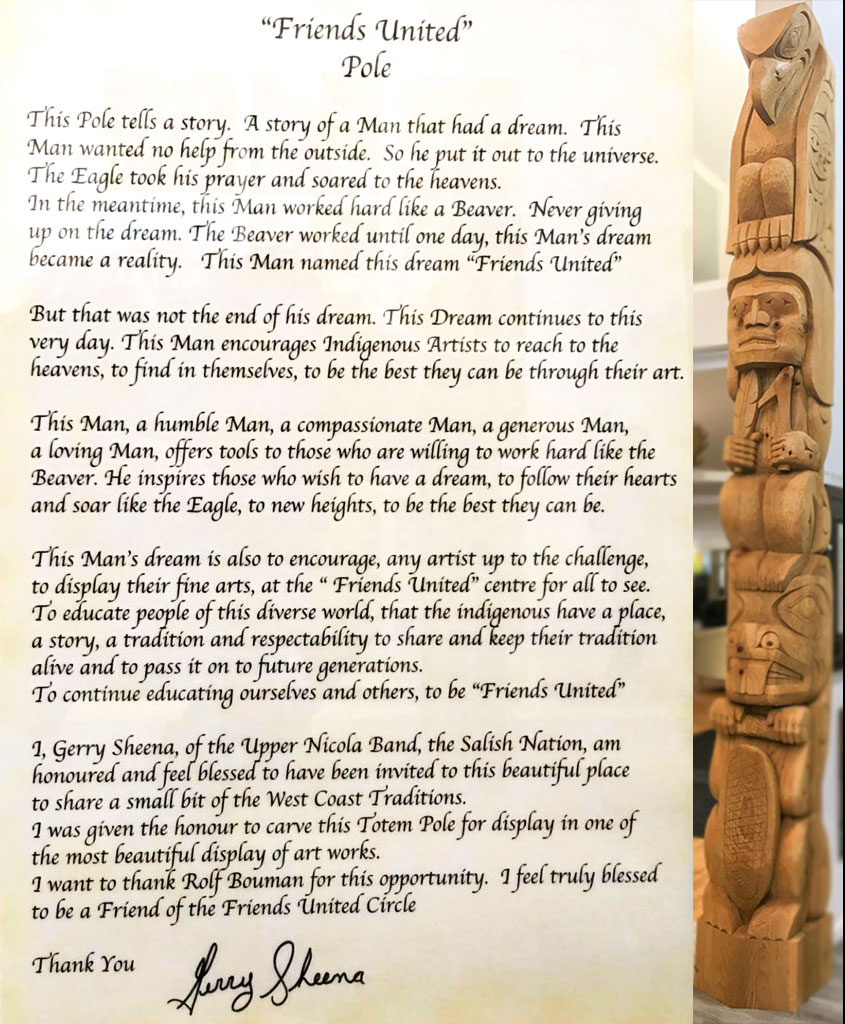 “Friends United”
Pole
This Pole tells a story. A story of a Man that had a dream. This
Man wanted no help from the outside. So he put it out to the universe.
The Eagle took his prayer and soared to the heavens.
In the meantime, this Man worked hard like a Beaver. Never giving
up on the dream. The Beaver worked until one day, this Man's dream
became a reality. This Man named this dream “Friends United”
But that was not the end of his dream. This Dream continues to this
very day. This Man encourages Indigenous Artists to reach to the
heavens, to find in themselves, to be the best they can be through their art.
This Man, a humble Man, a compassionate Man, a generous Man,
a loving Man, offers tools to those who are willing to work hard like the
Beaver. He inspires those who wish to have a dream, to follow their hearts
and soar like the Eagle, to new heights, to be the best they can be.
This Man's dream is also to encourage, any artist up to the challenge,
to display their fine arts, at the “ Friends United” centre for all to see.
To educate people of this diverse world, that the indigenous have a place,
a story, a tradition and respectability to share and keep their tradition
alive and to pass it on to future generations.
To continue educating ourselves and others, to be “Friends United”
I, Gerry Sheena, of the Upper Nicola Band, the Salish Nation, am
honoured and feel blessed to have been invited to this beautiful place
to share a small bit of the West Coast Traditions.
I was given the honour to carve this Totem Pole for display in one of
the most beautiful display of art works.
I want to thank Rolf Bouman for this opportunity. I feel truly blessed
to be a Friend of the Friends United Circle
Thank You
Gerry Sheena